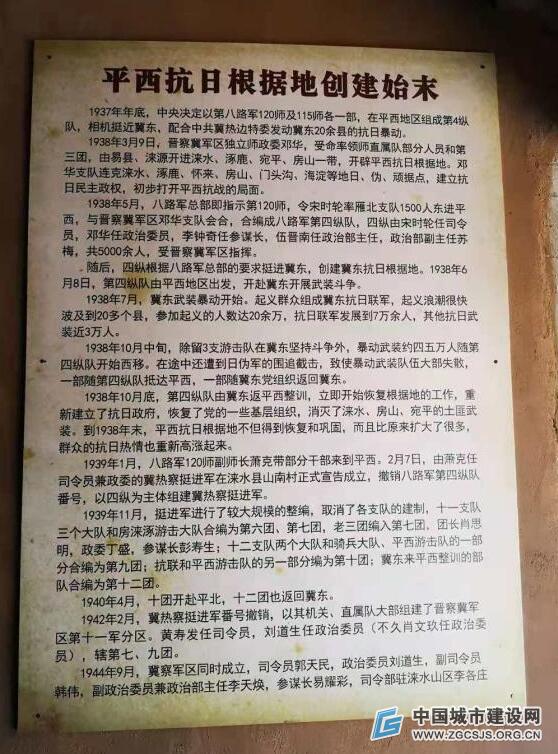 平西抗日根据地创建始末
1937年年底，中央决定以第八路军120师及115师各一部，在平西地区组成第4纵
队，相机挺近冀东，配合中共冀热边特委发动冀东20余县的抗日暴动。
1938年3月9日，晋察冀军区独立师政委邓华，受命率领师直属队部分人员和第
三团，由易县、涞源开进涞水、涿鹿、宛平、房山一带，开辟平西抗日根据地。邓
华支队连克涞水、涿鹿、怀来、房山、门头沟、海淀等地日、伪、顽据点，建立抗
日民主政权，初步打开平西抗战的局面。
1938年5月，八路军总部即指示第120师，令宋时轮率雁北支队1500人东进平
西，与晋察冀军区邓华支队会合，合编成八路军第四纵队，四纵由宋时轮任司令
员，邓华任政治委员，李钟奇任参谋长，伍晋南任政治部主任，政治部副主任苏
梅，共5000余人，受晋察冀军区指挥。
随后，四纵根据八路军总部的要求挺进冀东，创建冀东抗日根据地。1938年6
月8日，第四纵队由平西地区出发，开赴冀东开展武装斗争。
1938年7月，冀东武装暴动开始。起义群众组成冀东抗日联军，起义浪潮很快
波及到20多个县，参加起义的人数达20余万，抗日联军发展到7万余人，其他抗日武
装近3万人。
1938年10月中旬，除留3支游击队在冀东坚持斗争外，暴动武装约四五万人随第
四纵队开始西移。在途中还遭到日伪军的围追截击，致使暴动武装队伍大部失散，
一部随第四纵队抵达平西，一部随冀东党组织返回冀东。
1938年10月底，第四纵队由冀东返平西整训，立即开始恢复根据地的工作，重
新建立了抗日政府，恢复了党的一些基层组织，消灭了涞水、房山、宛平的土匪武
装。到1938年末，平西抗日根据地不但得到恢复和巩固，而且比原来扩大了很多，
群众的抗日热情也重新高涨起来。
1939年1月，八路军120师副师长萧克带部分干部来到平西。2月7日，由萧克任
司令员兼政委的冀热察挺进军在涞水县山南村正式宣告成立，撤销八路军第四纵队
番号，以四纵为主体组建冀热察挺进军。
1939年11月，挺进军进行了较大规模的整编，取消了各支队的建制，十一支队
三个大队和房涞涿游击大队合编为第六团、第七团，老三团编入第七团，团长肖思
明，政委丁盛，参谋长彭寿生；十二支队两个大队和骑兵大队、平西游击队的一部
分合编为第九团；抗联和平西游击队的另一部分编为第十团；冀东来平西整训的部
队合编为第十二团。
1940年4月，十团开赴平北，十二团也返回冀东。
1942年2月，冀热察挺进军番号撤销，以其机关、直属队大部组建了晋察冀军
区第十一军分区。黄寿发任司令员，刘道生任政治委员（不久肖文玖任政治委
员），辖第七、九团。
1944年9月，冀察军区同时成立，司令员郭天民，政治委员刘道生，副司令员
韩伟，副政治委员兼政治部主任李天焕，参谋长易耀彩，司令部驻涞水山区李各庄
中国城市建设网
WWW.ZGCSJS.ORG.CN